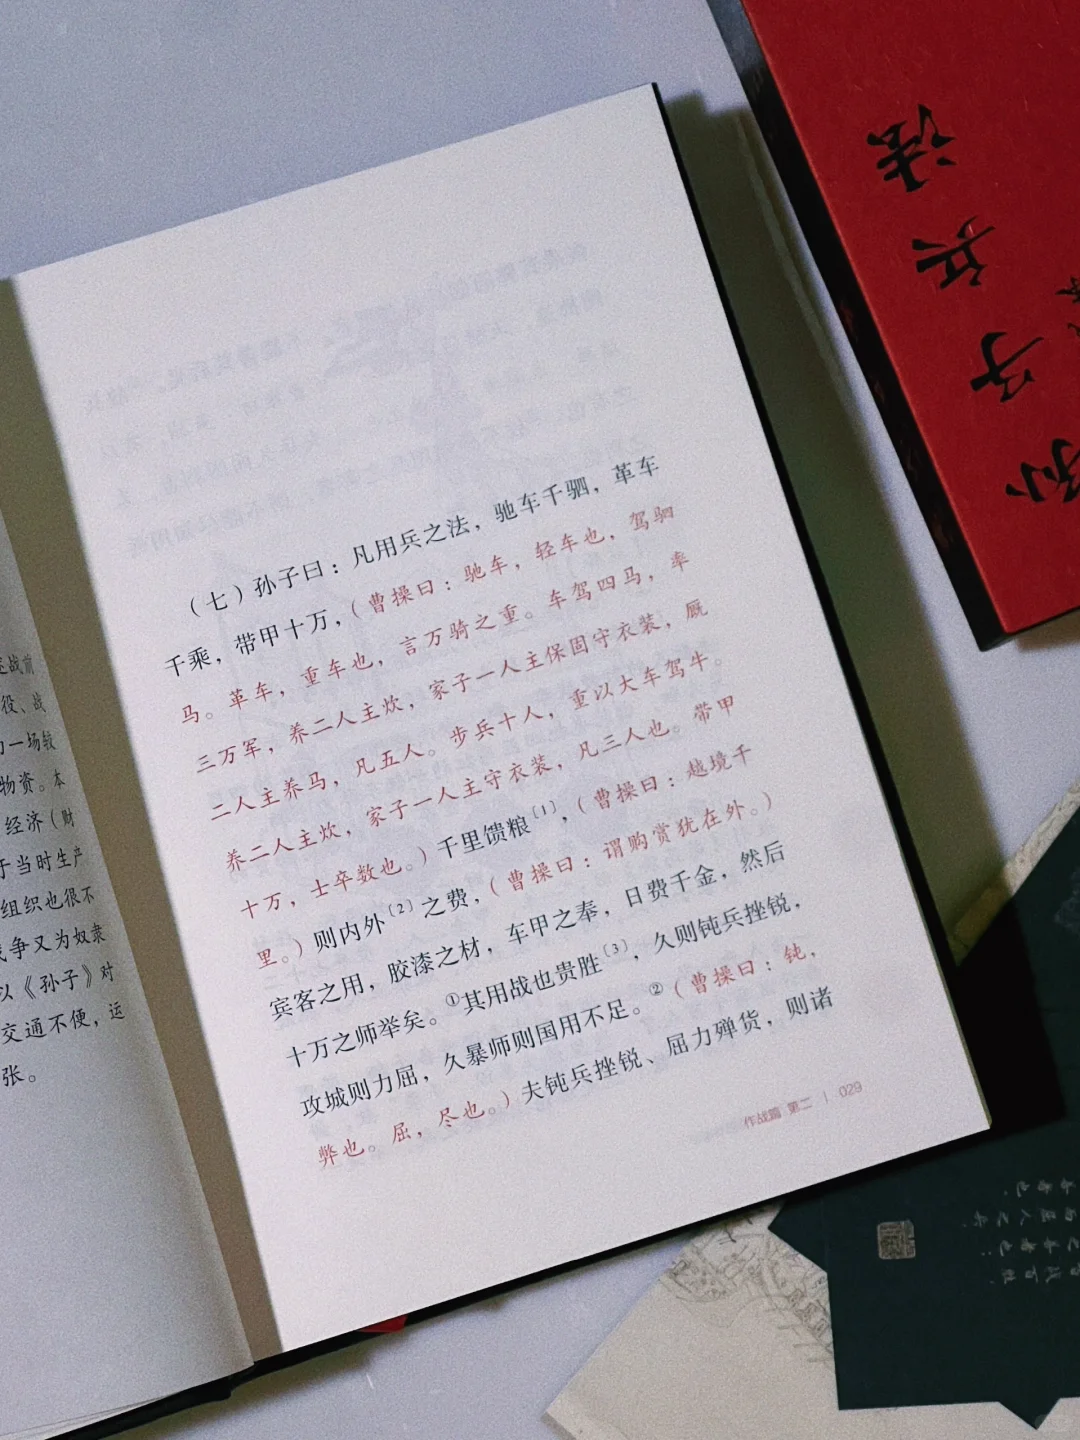 役、战
一场较
物资。本
经济（财
于当时生产
组织也很不
战争又为奴隶
以《孙子》对
交通不便，运
张。
（七）孙子曰：凡用兵之法，驰车千驷，革车
千乘，带甲十万，（曹操曰：驰车，轻车也，驾驷
马。革车，重车也，言万骑之重。车驾四马，率
三万军，养二人主炊，家子一人主保固守衣装，厩
二人主养马，凡五人。步兵十人，重以大车驾牛。
养二人主炊，家子一人主守衣装，凡三人也。带甲
十万，士卒数也。）千里馈粮〔1〕，（曹操曰：越境千
里。）则内外〔2〕之费，（曹操曰：谓购赏犹在外。）
宾客之用，胶漆之材，车甲之奉，日费千金，然后
十万之师举矣。①其用战也贵胜〔3〕，久则钝兵挫锐，
攻城则力屈，久暴师则国用不足。②（曹操曰：钝，
弊也。屈，尽也。）夫钝兵挫锐、屈力殚货，则诸
作战篇 第二 | 029
孙子兵法